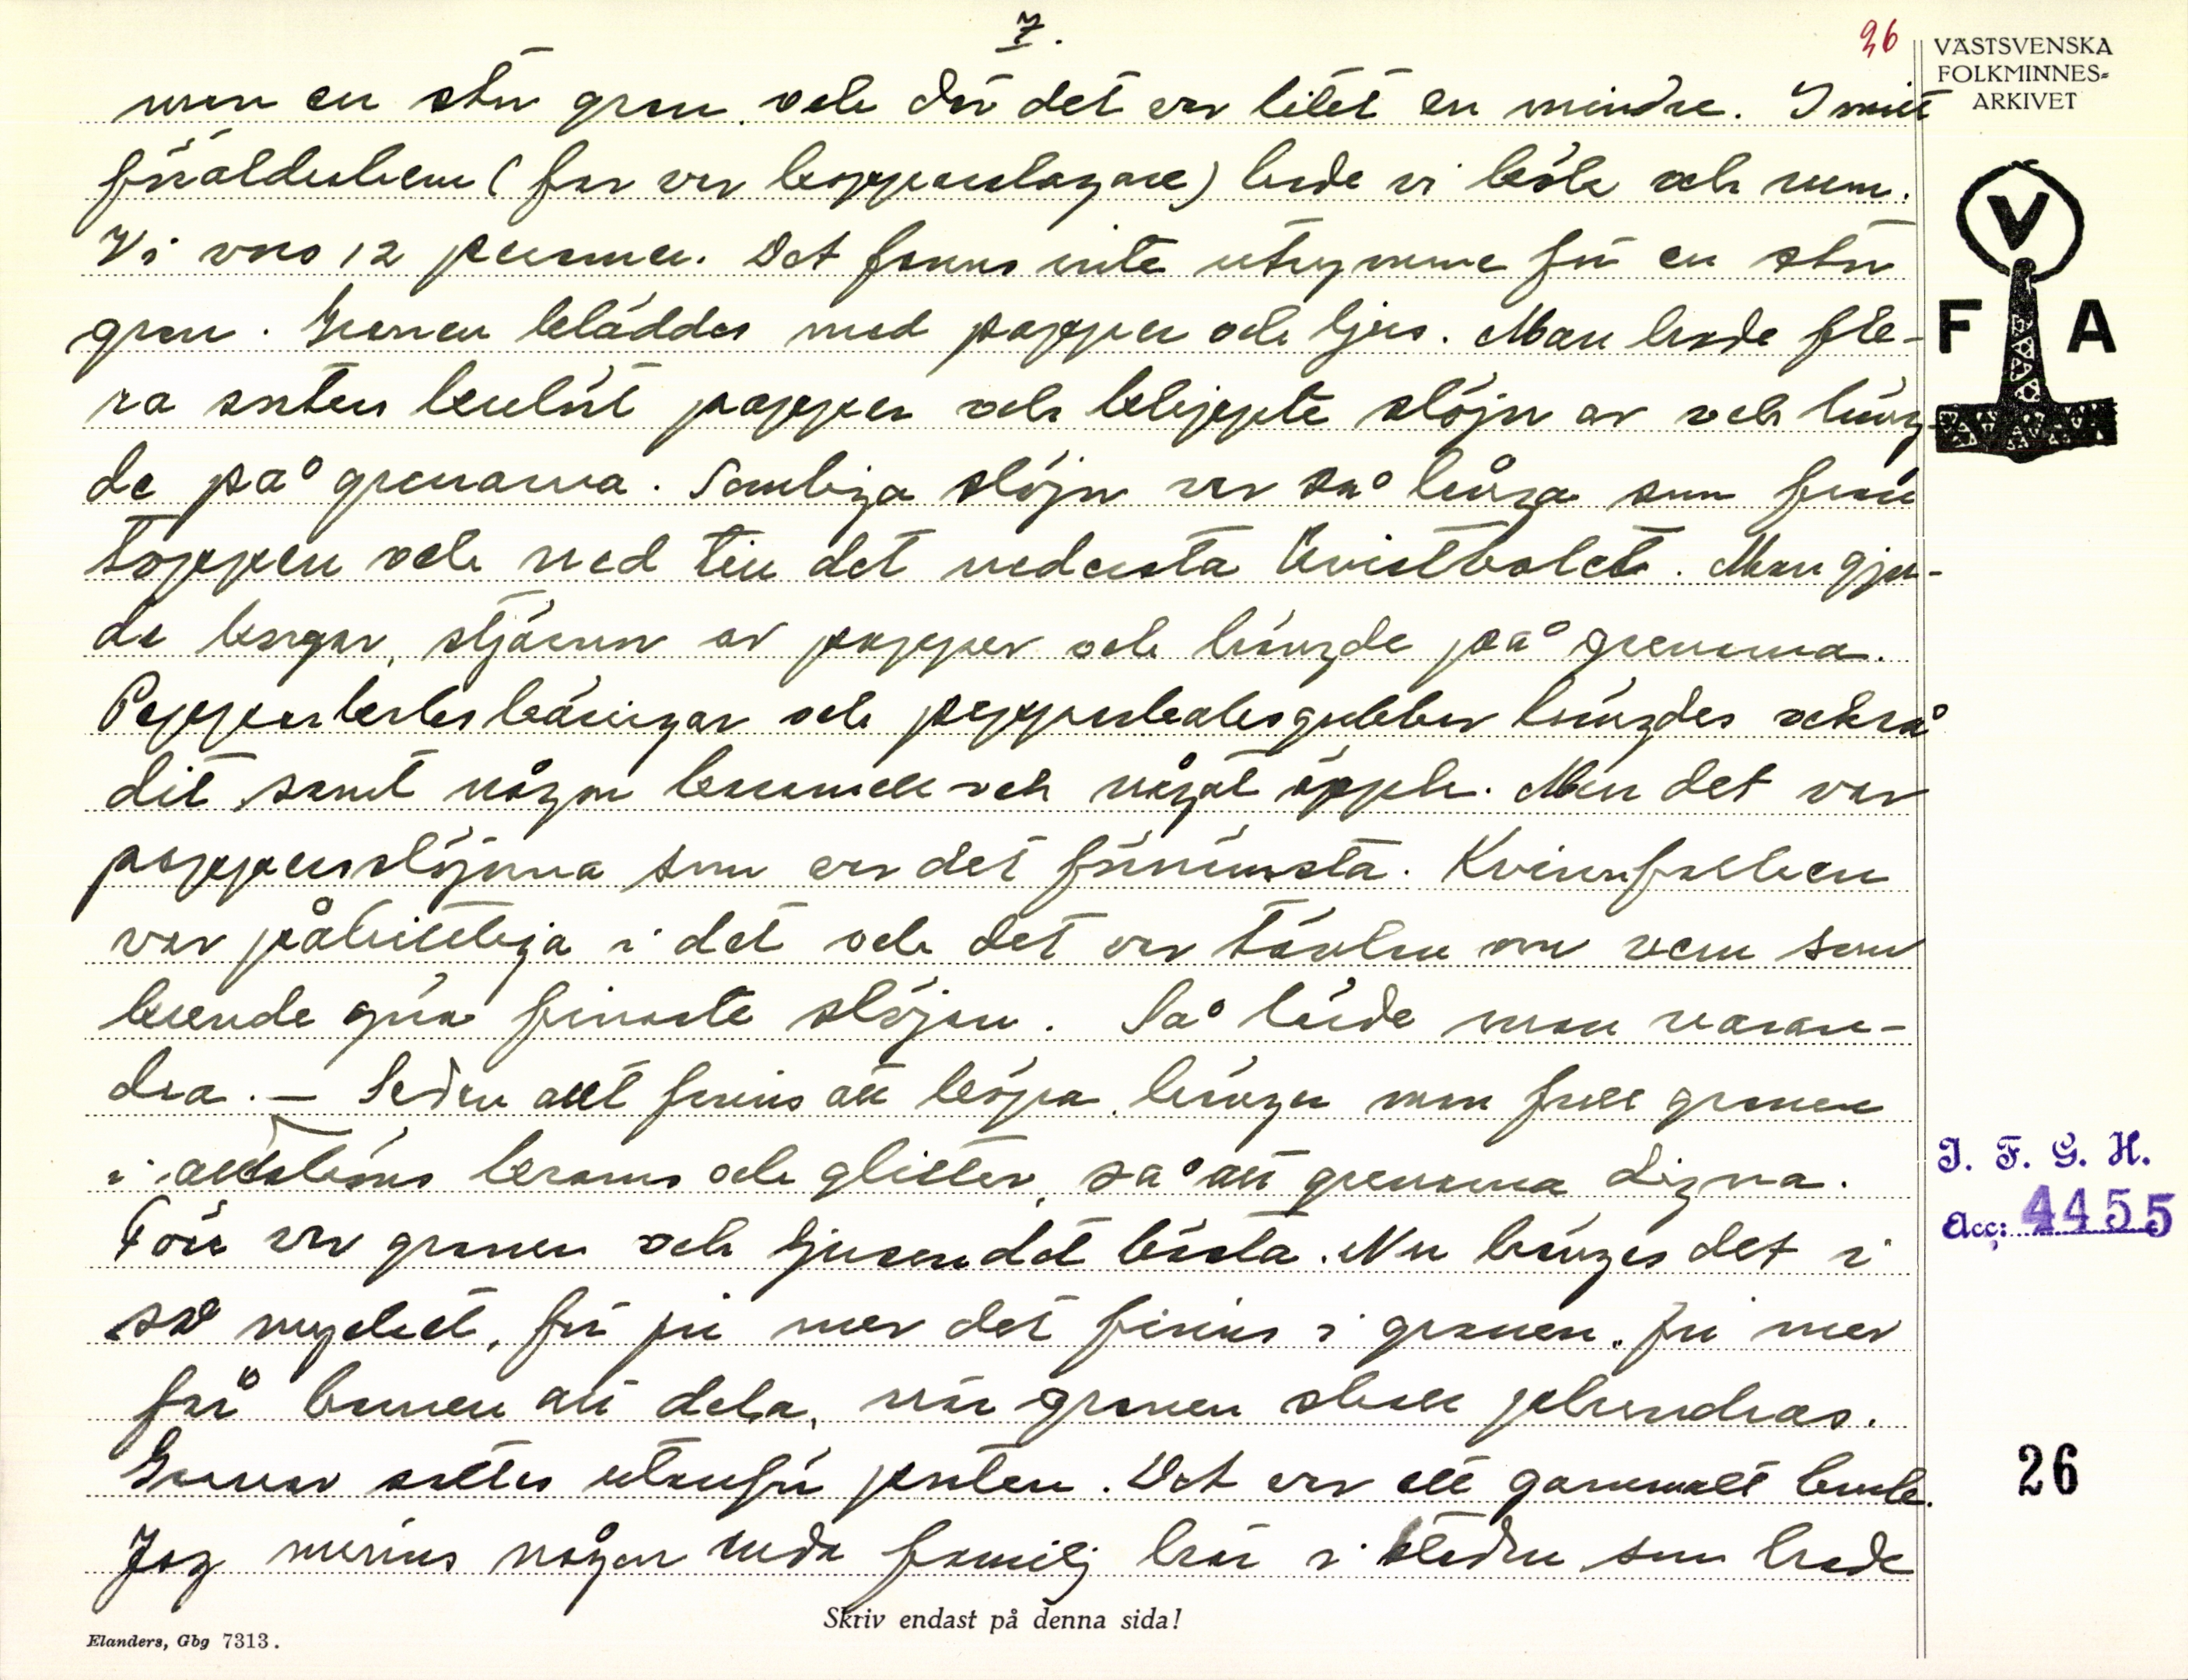 7.
26
VÄSTSVENSKA
FOLKMINNES-
ARKIVET
V
F A
man en stor gran, och där det var litet en mindre. I mitt
föräldrahem (far var kopparslagare) hade vi kök och rum.
Vi voro 12 personer. Det fanns inte utrymme för en stor
gran. Granen kläddes med papper och ljus. Man hade fle-
ra sorters kulört papper och klippte slöjor av och häng-
de på grenarna. Somliga slöjor var så långa som från
toppen och ned till det nedersta kvistvalet. Man gjor-
de korgar, stjärnor av papper och hängde på grenarna.
Pepparkakskäringar och pepparkaksgubbar hängdes också
dit samt någon karamell och något äpple. Men det var
pappersslöjorna som var det förnämsta. Kvinnfolken
var påhittiga i det och det var tävlan om vem som
kunde göra finaste slöjan. Så lärde man varan-
dra. — Sedan allt finns att köpa, hänger man full granen
i allsköns krams och glitter, så att grenarna digna.
Förr var granen och ljusen det bästa. Nu hänges det i
så mycket, för ju mer det finns i granen, ju mer
få barnen att dela, när granen skall plundras.
Granar sattes utanför porten. Det var ett gammalt bruk.
Jag minns någon enda familj här i staden som hade
I. F. G. H.
Acc: 4455
26
Skriv endast på denna sida!
Elanders, Gbg 7313.